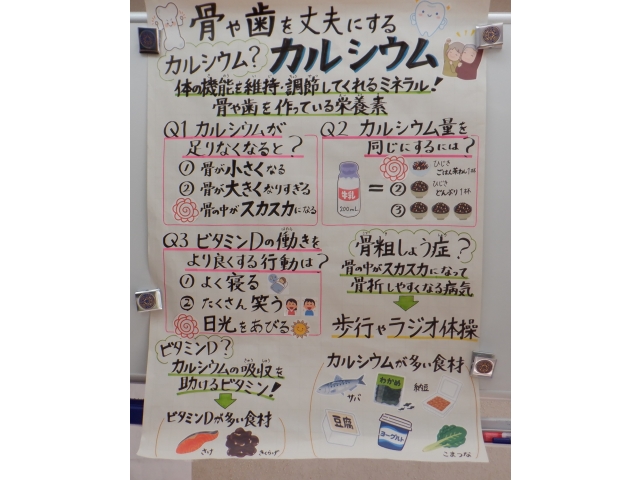 骨や歯を丈夫にする
カルシウム?
カルシウム
体の機能を維持・調節してくれるミネラル!
骨や歯を作っている栄養素
Q1 カルシウムが
足りなくなると?
① 骨が小さくなる
② 骨が大きくなりすぎる
骨の中がスカスカになる
Q2 カルシウム量を
同じにするには?
牛乳
200mL
=
ひじき
ごはん茶わん1杯
②
ひじき
どんぶり1杯
③
Q3 ビタミンDの働きを
より良くする行動は?
① よく寝る
② たくさん笑う
日光をあびる
骨粗しょう症?
骨の中がスカスカになって
骨折しやすくなる病気
歩行やラジオ体操
ビタミンD?
カルシウムの吸収を
助けるビタミン!
ビタミンDが多い食材
さけ
きくらげ
カルシウムが多い食材
サバ
わかめ
納豆
豆腐
ヨーグルト
こまつな